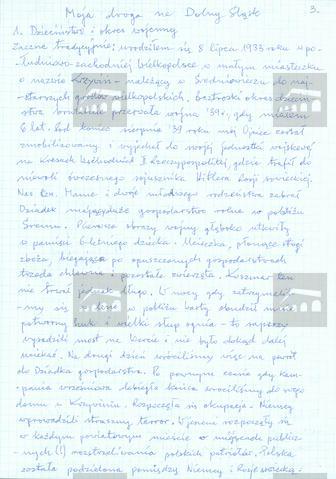 Moja droga na Dolny Śląsk
3.
1. Dzieciństwo i okres wojenny.
Zacznę tradycyjnie; urodziłem się 8 lipca 1933 roku w po-
łudniowo-zachodniej Wielkopolsce w małym miasteczku
o nazwie Krzywiń - należącej w Średniowieczu do naj-
starszych grodów wielkopolskich. Beztroski okres dzieciń-
stwa brutalnie przerwała wojna 39r. gdy miałem
6 lat. Pod koniec sierpnia '39 roku mój Ojciec został
zmobilizowany i wyjechał do swojej jednostki wojskowej
na kresach wschodnich II Rzeczypospolitej, gdzie trafił do
niewoli ówczesnego sojusznika Hitlera Rosji sowieckiej.
Nas Mamę i dwoje młodszego rodzeństwa zabrał
Dziadek mający duże gospodarstwo rolne w pobliżu
Śremu. Pierwsze obrazy wojny głęboko utkwiły
w pamięci 6-letniego dziecka. Ucieczka, płonące stogi
zboża, biegająca po opuszczonych gospodarstwach
trzoda chlewna i pozostałe zwierzęta. Koszmar ten
nie trwał jednak długo. W nocy gdy zatrzymali-
śmy się w pobliżu Warty obudził mnie
potworny huk i wielki słup ognia - to saperzy
wysadzili most na Warcie i nie było dokąd dalej
uciekać. Na drugi dzień wróciliśmy więc na powrót
do Dziadka gospodarstwa. Po pewnym czasie gdy kam-
pania wrześniowa dobiegła końca wróciliśmy do swego
domu w Krzywiniu. Rozpoczęła się okupacja. Niemcy
wprowadzili straszny terror. Wojenne rozpoczęły się
w każdym powiatowym mieście w miejscach publicz-
nych (!) rozstrzeliwania polskich patriotów. Polska
została podzielona pomiędzy Niemcy i Rosję sowiecką.